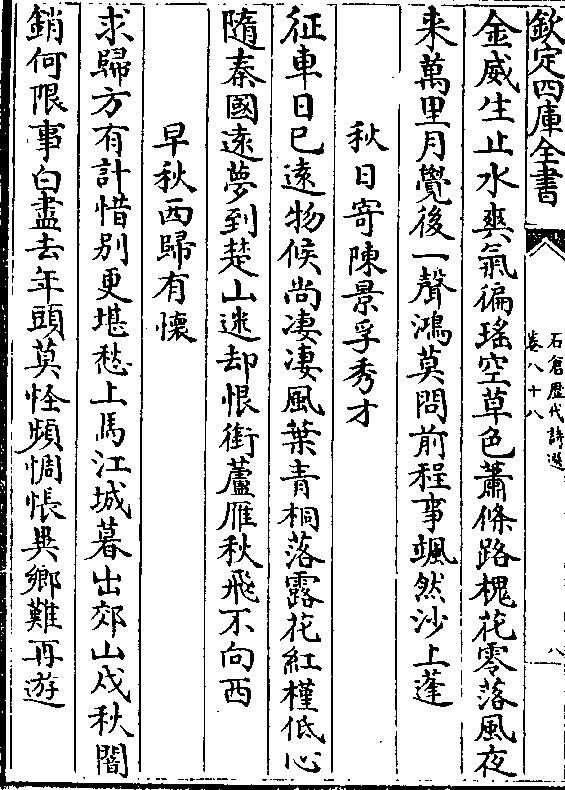 欽定四庫全書
石倉歴代詩選
卷八十八
八
金威生止水爽氣徧瑤空草色蕭條路槐花零落風夜
来萬里月覺後一聲鴻莫問前程事颯然沙上蓬
秋日寄陳景孚秀才
征車日已遠物候尚凄凄風葉青桐落露花紅槿低心
隨秦國遠夢到楚山迷却恨銜蘆雁秋飛不向西
早秋西歸有懷
求歸方有計惜别更堪愁上馬江城暮出郊山戍秋闇
銷何限事白盡去年頭莫怪頻惆悵異鄉難再遊